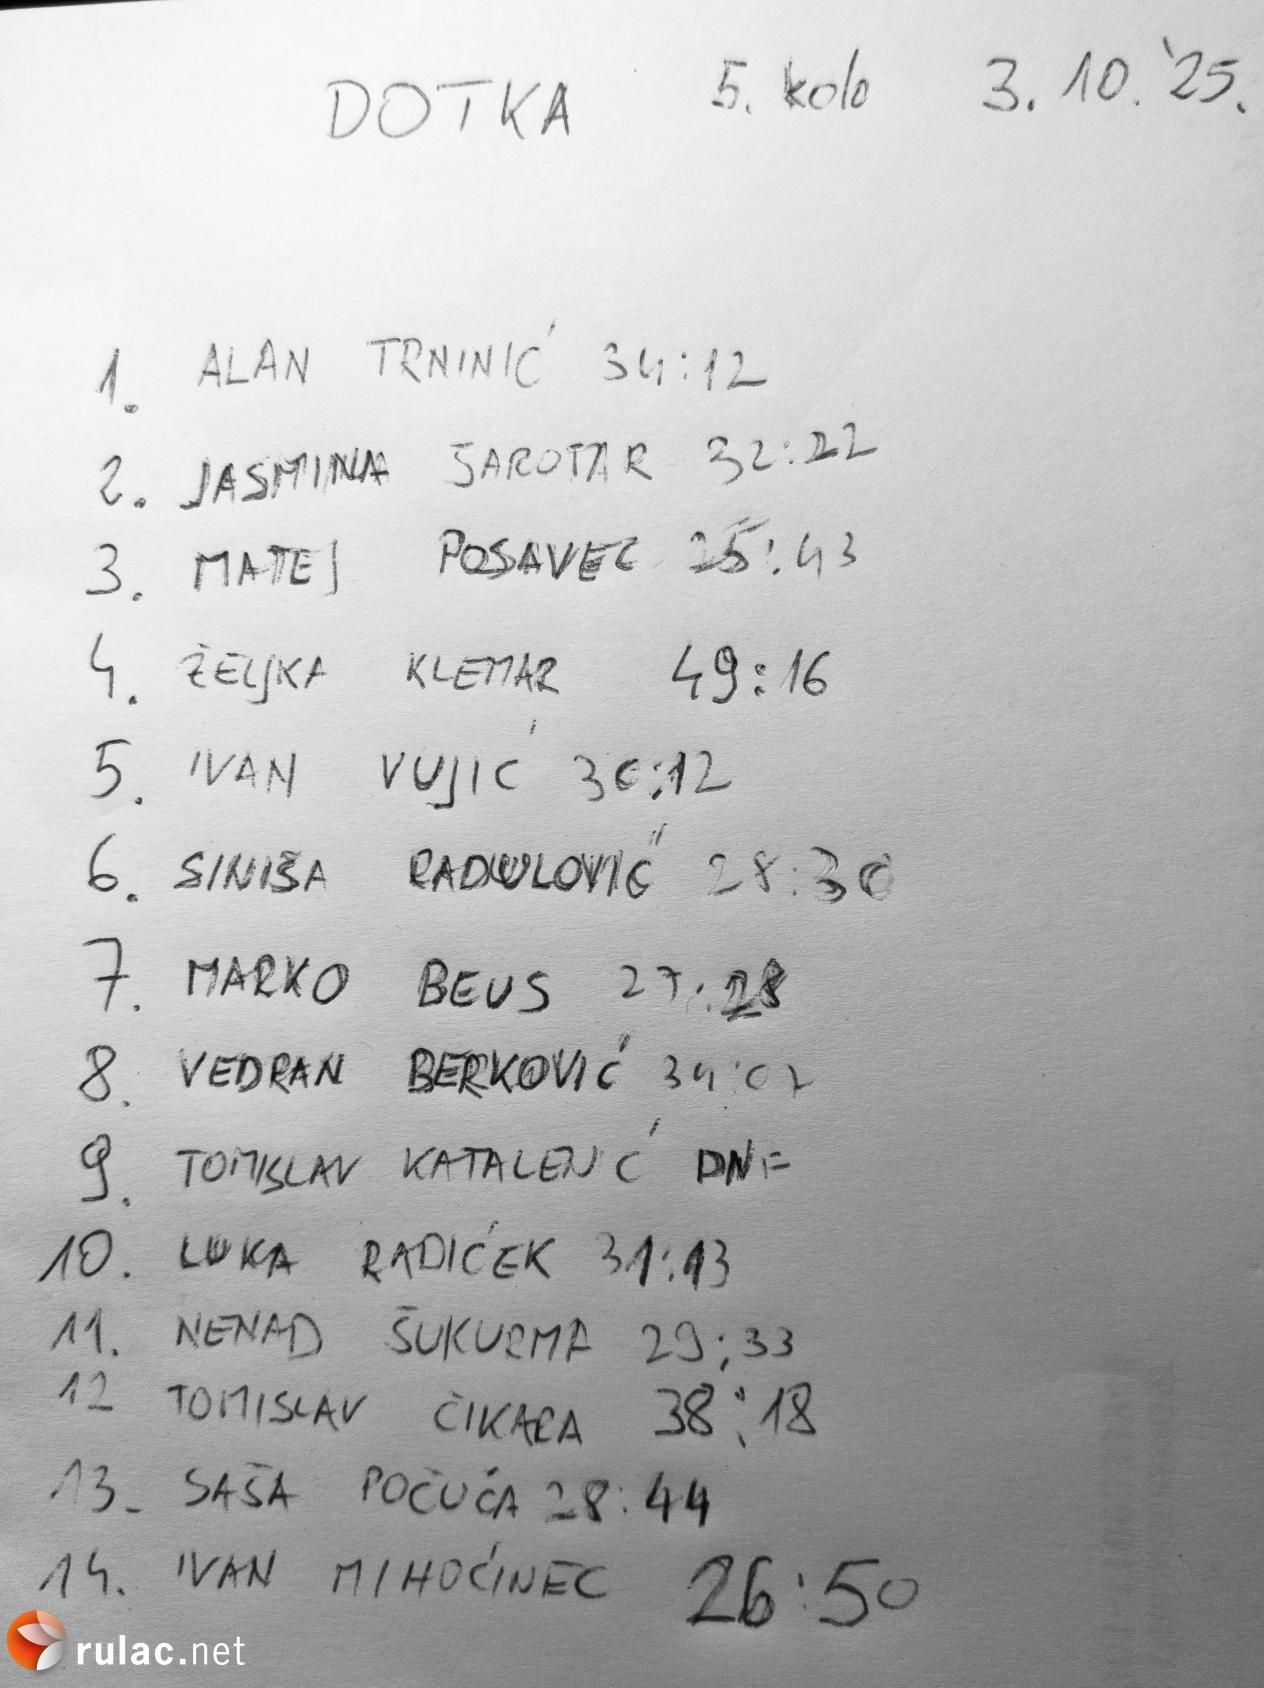 DOTKA 5. kolo 3. 10. '25.
1. ALAN TRNINIĆ 34:12
2. JASMINA ŠAROTAR 32:22
3. MATEJ POSAVEC 25:43
4. ŽELJKA KLEMAR 49:16
5. IVAN VUJIĆ 30:12
6. SINIŠA RADULOVIĆ 28:30
7. MARKO BEUS 27:28
8. VEDRAN BERKOVIĆ 34:02
9. TOMISLAV KATALENIĆ DNF
10. LUKA RADIČEK 31:13
11. NENAD ŠUKURMA 29:33
12 TOMISLAV ČIKARA 38:18
13. SAŠA POČUČA 28:44
14. IVAN MIHOĆINEC 26:50
rulac.net